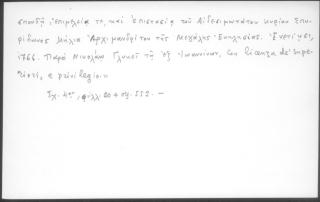 σπουδῇ, ἐπιμελείᾳ τε, καὶ ἐπιστασίᾳ τοῦ Αἰδεσιμωτάτου κυρίου Σπυ-
ρίδωνος Μήλια Ἀρχιμανδρίτου τῆς Μεγάλης Ἐκκλησίας. Ἐνετίῃσι,
1766. Παρὰ Νικολάῳ Γλυκεῖ τῷ ἐξ Ἰωαννίνων, Con licenza de' Supe-
riori, e privilegio.»
Σχ. 4ον, φύλλ. 20 + σσ. 552. —